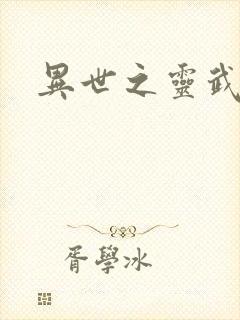 異世之靈武
胥學冰